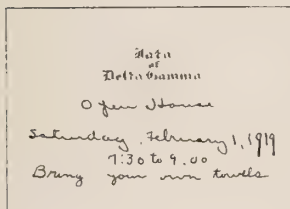 Iota
of
Delta Gamma
Open House
Saturday, February 1, 1919
7:30 to 9.00
Bring your own towels